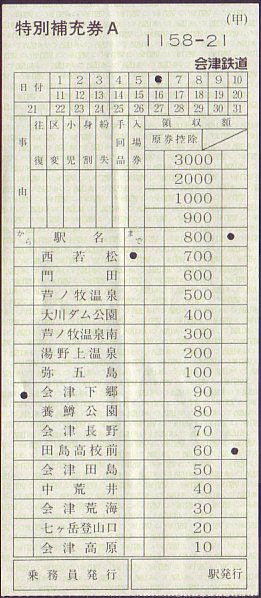 (甲)
特別補充券A
1158-21
会津鉄道
日付 1 2 3 4 5 6 7 8 9 10
11 12 13 14 15 16 17 18 19 20
21 22 23 24 25 26 27 28 29 30 31
事由 往復 区変 小児 身割 紛失 手回品 入場券 領収額
原券控除
3000
2000
1000
900
から 駅名 まで 800
西若松 700
門田 600
芦ノ牧温泉 500
大川ダム公園 400
芦ノ牧温泉南 300
湯野上温泉 200
弥五島 100
会津下郷 90
養鱒公園 80
会津長野 70
田島高校前 60
会津田島 50
中荒井 40
会津荒海 30
七ヶ岳登山口 20
会津高原 10
乗務員発行 駅発行